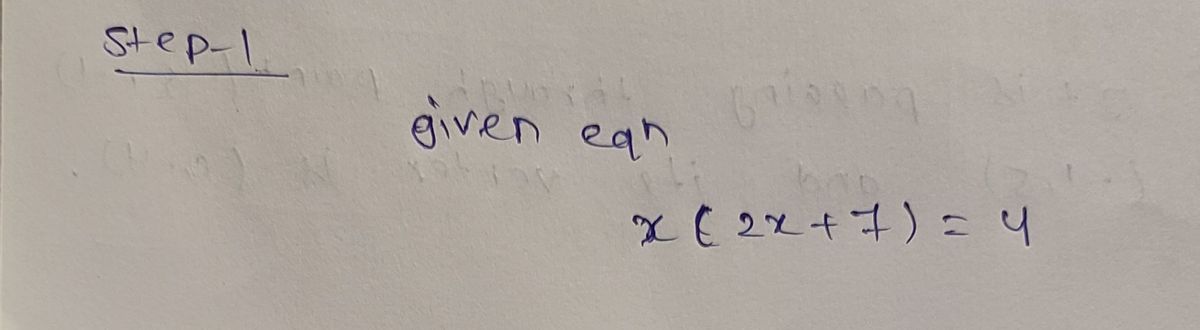 Step-1
given eqn
x(2x+7)=4